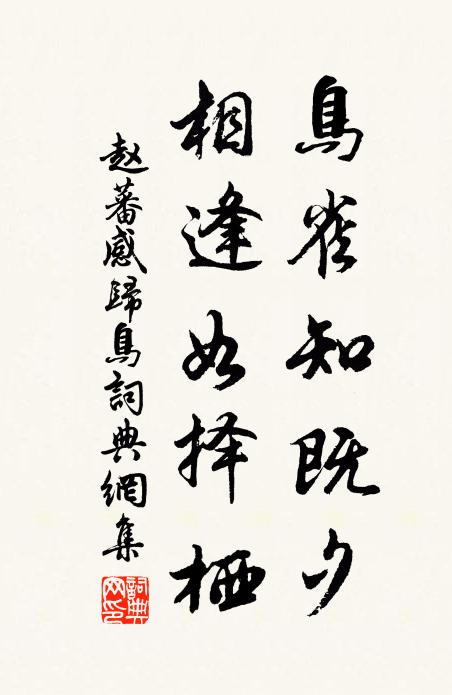 鳥雀知既夕
相逢如择栖
赵蕃感歸鳥詞典網集
詞典
网印